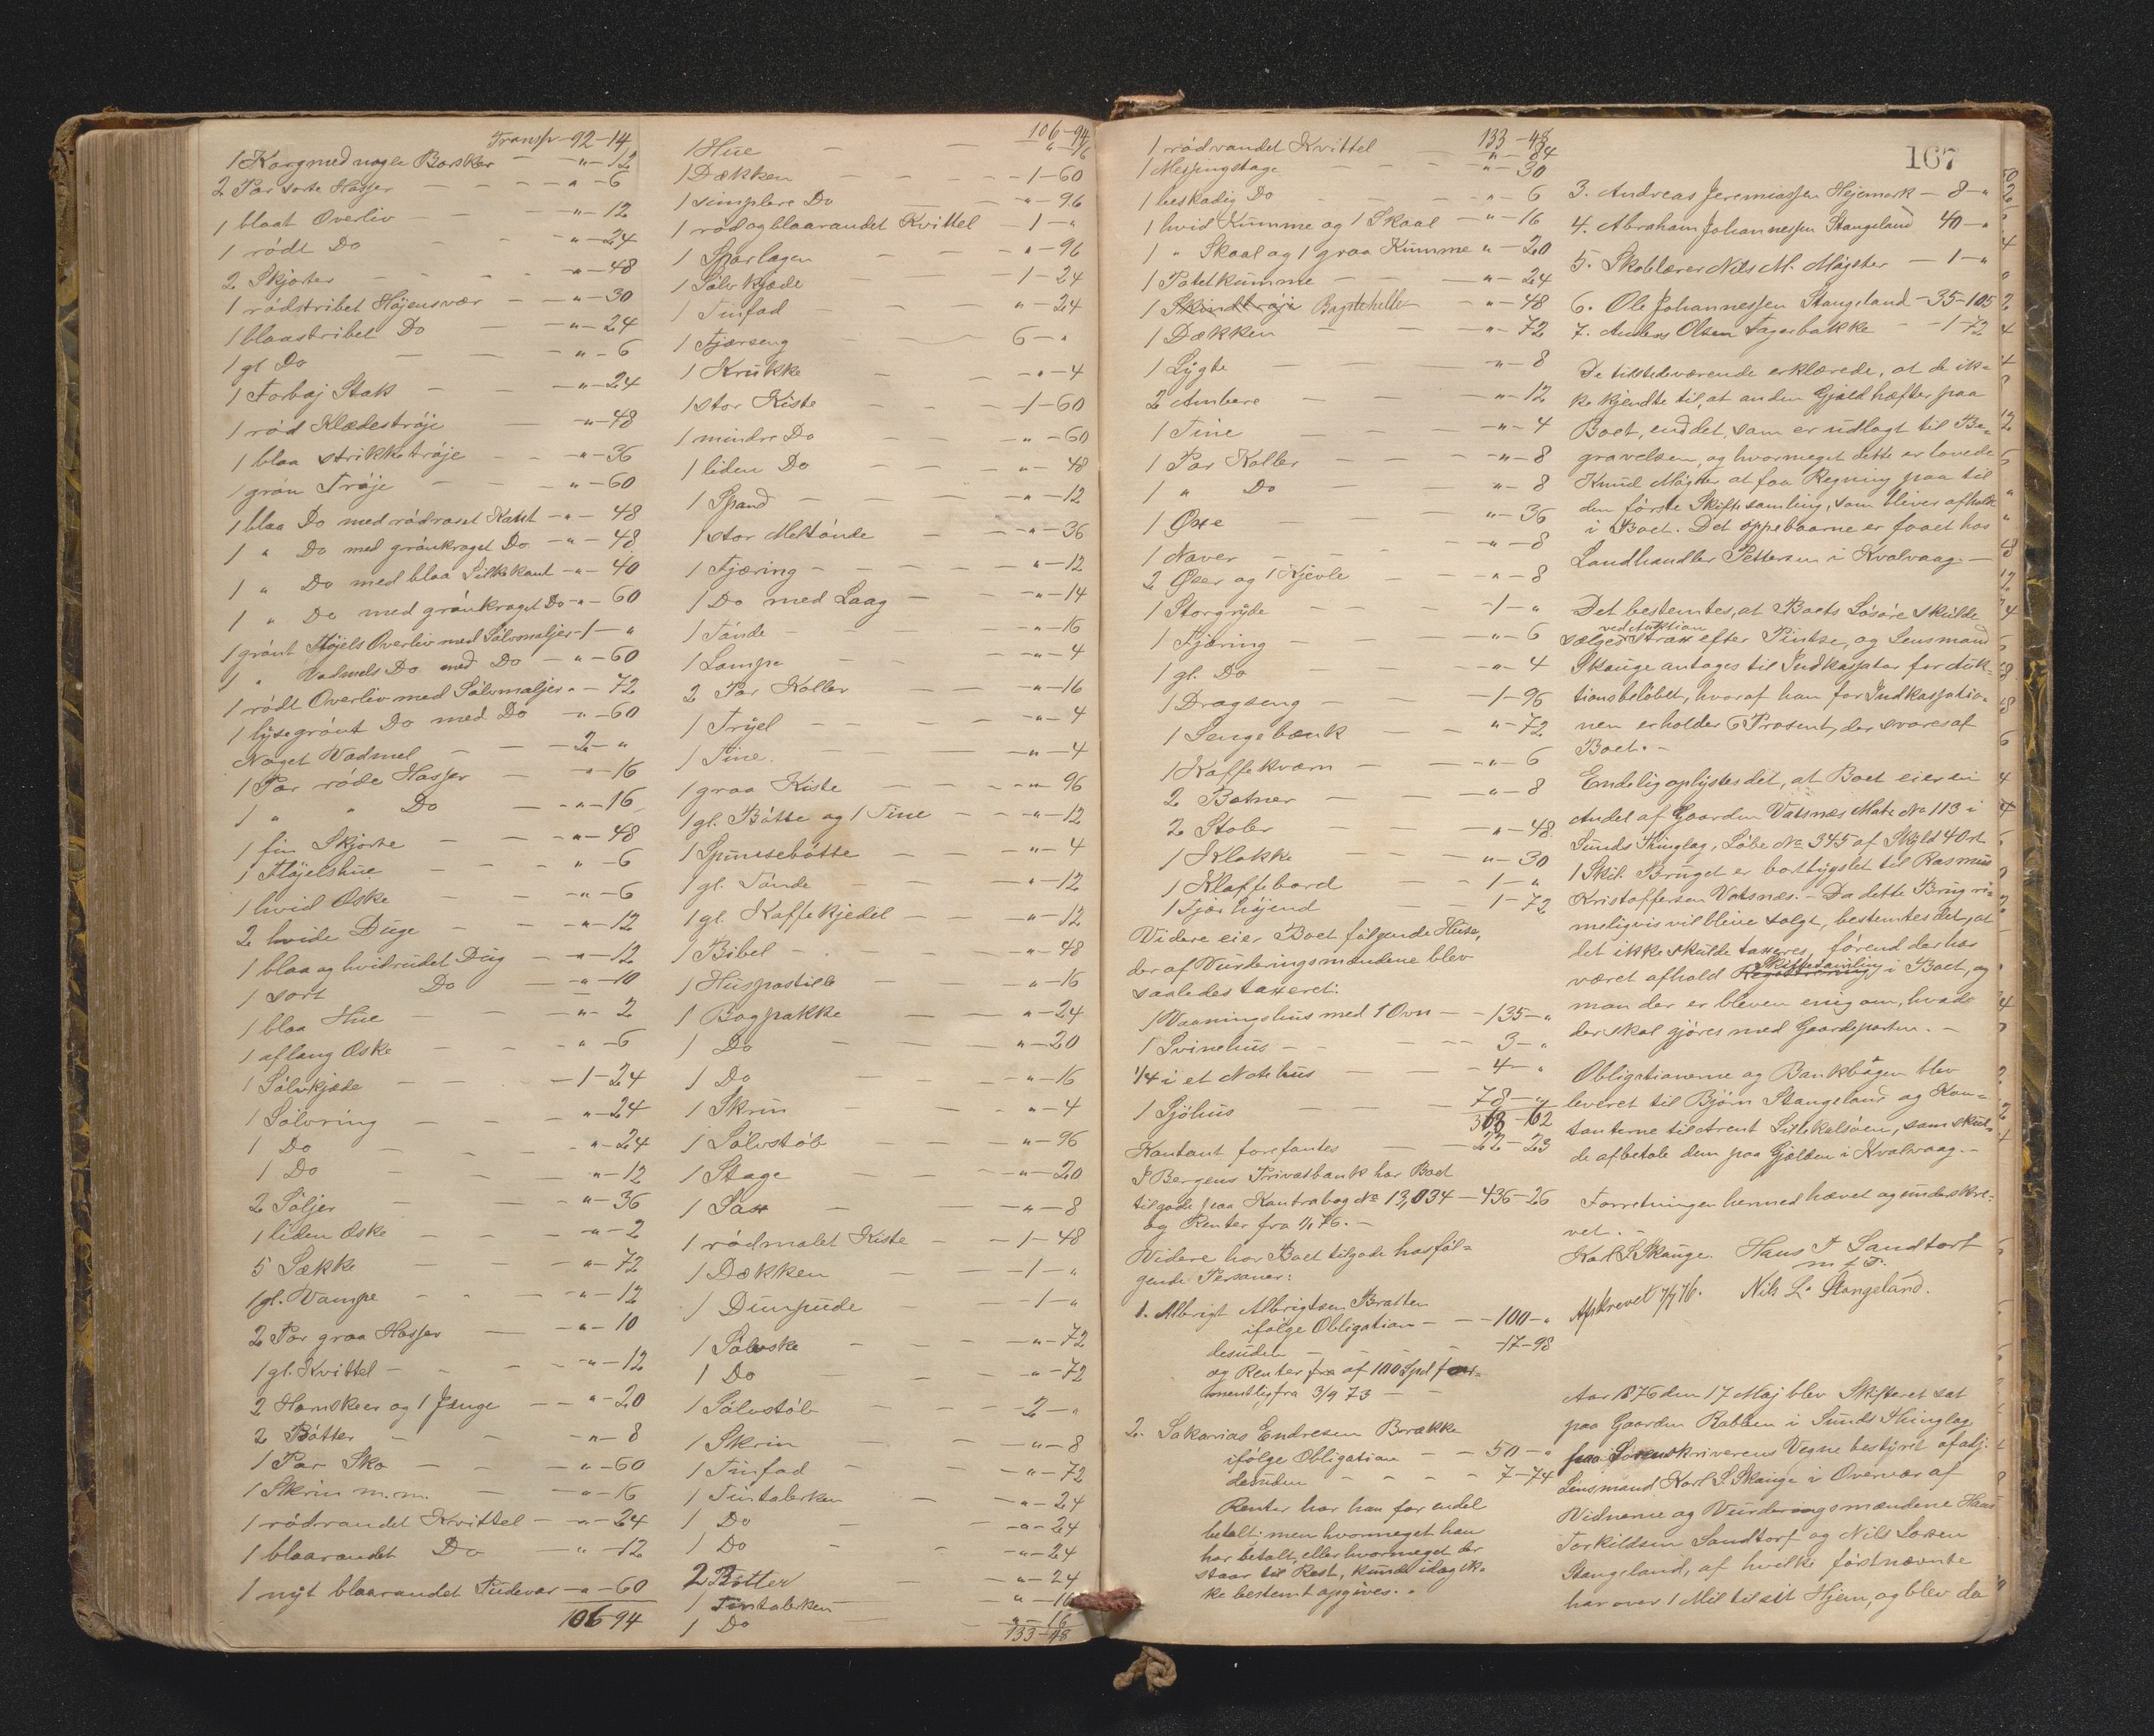 Transp 92-14
1 Korg med nogle Børsker - " - 12
2 Par sorte Hosser - " - 6
1 blaat Overliv - " - 12
1 rödt Do - " - 24
2 Skjorter - " - 48
1 rödstribet Höjensvær - " - 30
1 blaastribet Do - " - 24
1 gl Do - " - 6
1 Forbaj Stak - " - 24
1 röd Klædeströje - " - 48
1 blaa strikketröje - " - 36
1 grön Tröje - " - 60
1 blaa Do med rödroset Kant - " - 48
1 " Do med grönkraget Do - " - 48
1 " Do med blaa Silkekant - " - 40
1 " Do med grönkraget Do - " - 60
1 grönt Flöjels Overliv med Sölvmaljer - 1 - "
1 " Vadmels Do med Do - " - 60
1 rödt Overliv med Sölvmaljer " - 72
1 lysegrönt Do med Do - " - 60
Noget Vadmel - 2 - "
1 Par röde Hosser - " - 16
1 " " Do - " - 16
1 fin Skjorte - " - 48
1 Flöjelshue - " - 6
1 hvid Æske - " - 6
2 hvide Duge - " - 12
1 blaa og hvidrudet Dug - " - 12
1 sort Do - " - 10
1 blaa Hue - " - 2
1 aflang Æske - " - 6
1 Sölvkjæde - 1 - 24
1 Sölvring - " - 24
1 Do - " - 24
1 Do - " - 12
2 Söljer - " - 36
1 liden Æske - " - 2
5 Sække - " - 72
1 gl. Vampe - " - 12
2 Par graa Hosser - " - 10
1 gl. Kvittel - " - 12
2 Hamskeer og 1 - " - 20
2 Bötter - " - 8
1 Par Sko - " - 60
1 Skrin m.m. - " - 16
1 rödrandet Kvittel - " - 24
1 blaarandet Do - " - 12
1 nyt blaarandet Pudevar - " - 60
106-94
106-94
1 Hue - " - 16
1 Dækken - 1 - 60
1 simplere Do - " - 96
1 röd og blaarandet Kvittel - 1 - "
1 Sparlagen - " - 96
1 Sölvkjæde - 1 - 24
1 Tinfad - " - 24
1 Fjærseng - 6 - "
1 Krukke - " - 4
1 stor Kiste - 1 - 60
1 mindre Do - " - 60
1 liden Do - " - 48
1 Spand - " - 12
1 stor Meltönde - " - 36
1 Fjæring - " - 12
1 Do med Laag - " - 14
1 Tönde - " - 16
1 Lampe - " - 4
2 Par Koller - " - 16
1 Tryel - " - 4
1 Tine - " - 4
1 graa Kiste - " - 96
1 gl. Bötte og 1 Tine - " - 12
1 Spunsebötte - " - 4
1 gl. Tönde - " - 12
1 gl. Kaffekjedel - " - 12
1 Bibel - " - 48
1 Huspostill - " - 16
1 Bogpakke - " - 24
1 Do - " - 20
1 Do - " - 16
1 Skrin - " - 4
1 Sölvstöb - " - 96
1 Stage - " - 20
1 Sax - " - 8
1 rödmalet Kiste - 1 - 48
1 Dækken - 1 - "
1 Dunpude - 1 - "
1 Sölvske - " - 72
1 Do - " - 72
1 Sölvstöb - 2 - "
1 Skrin - " - 8
1 Tinfad - " - 72
1 Tintalerken - " - 24
1 Do - " - 24
1 Do - " - 24
2 Bötter - " - 24
1 Tintalerken - " - 16
1 Do - " - 16
133-48
133-48
1 rödrandet Kvittel - " - 84
1 Messingstage - " - 30
1 beskadig Do - " - 6
1 hvid Kumme og 1 Skaal - " - 16
1 " Skaal og 1 graa Kumme " - 20
1 Potetkumme - " - 24
1 Skindtröje Bagstehelle - " - 48
1 Dækken - " - 72
1 Lygte - " - 8
2 Ambere - " - 12
1 Tine - " - 4
1 Par Koller - " - 8
1 " Do - " - 8
1 Øxe - " - 36
1 Naver - " - 8
2 Øser og 1 Kjevle - " - 8
1 Storgryde - 1 - "
1 Fjæring - " - 6
1 gl. Do - " - 4
1 Dragseng - 1 - 96
1 Sengebænk - " - 72
1 Kaffekværn - " - 6
2 Botner - " - 8
2 Stoler - " - 48
1 Klokke - " - 30
1 Klaffebord - 1 - "
1 Fjær höjend - 1 - 72
Videre eier Boet fölgende Huse,
der af Vurderingsmændene blev
saaledes taxeret:
1 Vaaningshus med 1 Ovn - 135 - "
1 Svinehus - 3 - "
1/4 i et Notehus - 4 - "
1 Sjöhus - 78 - "
363-62
Kontant forefantes 22-23
I Bergens Privatbank har Boet
tilgode paa Kontrabog No 13,034 - 436-26
og Renter fra 1/1 76. -
Videre har Boet tilgode hos föl=
gende Personer:
1. Albrigt Albrigtsen Bratten
ifölge Obligation - 100 - "
desuden - 17-98
og Renter fra af 100 Spd
mentlig fra 3/9 73 -
2. Sakarias Endresen Brække
ifölge Obligation - 50 - "
desuden - 7-74
Renter har han for endel
betalt, men hvormeget han
har betalt, eller hvormeget der
staar til Rest, kunde idag ik=
ke bestemt opgives. "
167
3. Andreas Jeremiassen Hejemark - 8 - "
4. Abraham Johannessen Stangeland 40 - "
5. Skolelærer Nils M. Mögster - 1 - "
6. Ole Johannessen Stangeland - 35-105
7. Anders Olsen Fagerbakke - 1-72
De tilstedeværende erklærede, at de ik=
ke kjendte til, at anden Gjæld hæfter paa
Boet, end det, som er udlagt til Be=
gravelsen, og hvormeget dette er lovede
Knud Mögster at faa Regning paa til
den förste Skiftesamling, som bliver afholdt
i Boet. Det oppebaarne er faaet hos
Landhandler Pettersen i Kvalvaag. -
Det bestemtes, at Boets Lösöre skulde
ved Auktion
sælges strax efter Pintse, og Lensmand
Skauge antages til Indkassator for Auk=
tionsbelöbet, hvoraf han for Indkassatio=
nen erholder 6 Prosent, der svares af
Boet. -
Endelig oplystes det, at Boet eier en
Andel af Gaarden Vatsnæs Matr No 113 i
Sunds Thinglag, Löbe No 345 af Skyld 4 Ort
1 Skil. Bruget er bortbygslet til Rasmus
Kristoffersen Vatsnes. - Da dette Brug ri=
meligvis vil blive solgt, bestemtes det, at
det ikke skulde taxeres, förend der har
Skiftesamling
været afhold Registrering i Boet, og
man der er bleven enig om, hvad
der skal gjöres med Gaardsparten. -
Obligationerne og Bankbogen blev
leveret til Björn Stangeland og Kon=
tanterne til Arent Lillekalsöen, som skul=
de afbetale dem paa Gjælden i Kvalvaag. -
Forretningen hermed hævet og underskre=
vet. -
Karl S. Skauge. Hans T Sandtorf
m f P.
Nils L. Stangeland.
Afskrevet 7/7 76.
Aar 1876 den 17 Maj blev Skifteret sat
paa Gaarden Rabben i Sunds Thinglag
paa Sorenskriverens Vegne bestyret af adj.
Lensmand Karl S Skauge i Overvær af
Vidnerne og Vurderingsmændene Hans
Torkildsen Sandtorf og Nils Larsen
Stangeland, af hvilke förstnævnte
har over 1 Mil til sit Hjem, og blev da